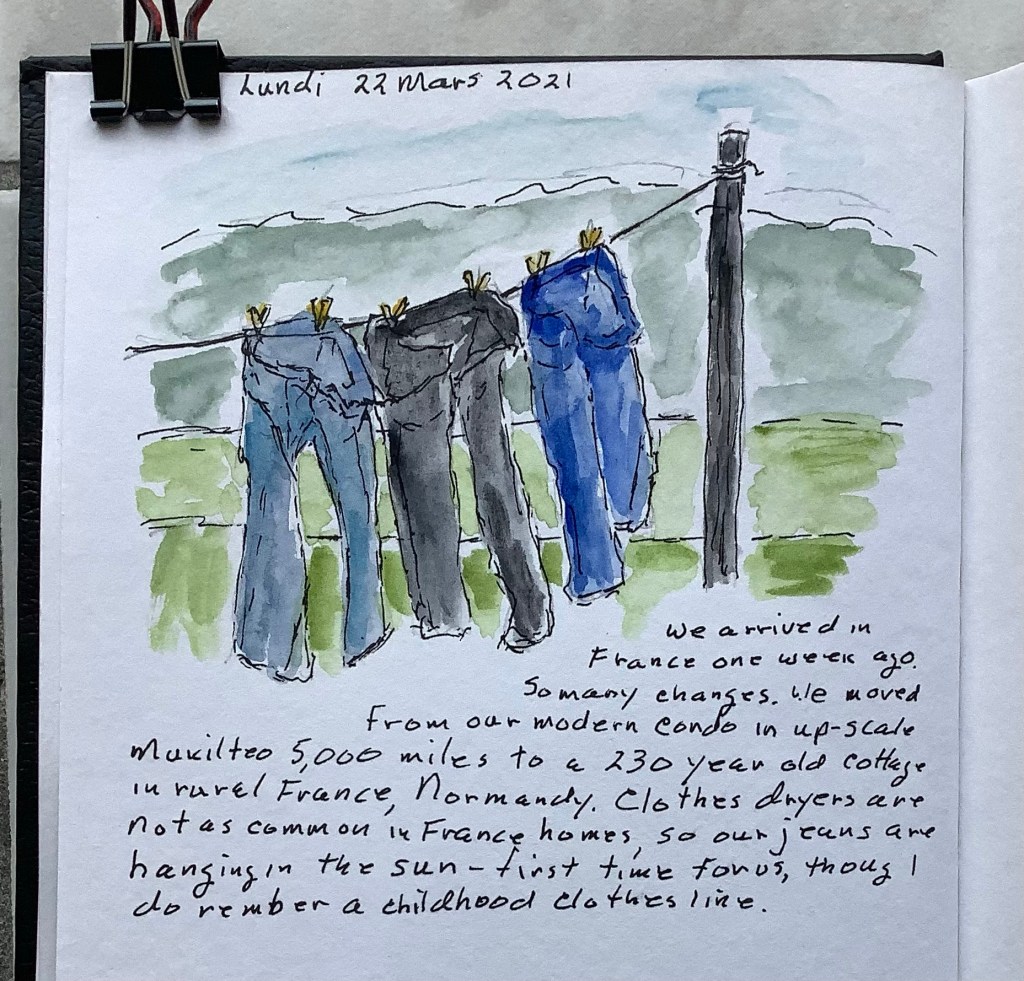 Lundi 22 Mars 2021
We arrived in
France one week ago.
So many changes. We moved
from our modern condo in up-scale
Mukilteo 5,000 miles to a 230 year old cottage
in rural France, Normandy. Clothes dryers are
not as common in France homes, so our jeans are
hanging in the sun - first time for us, thoug I
do rember a childhood clothes line.